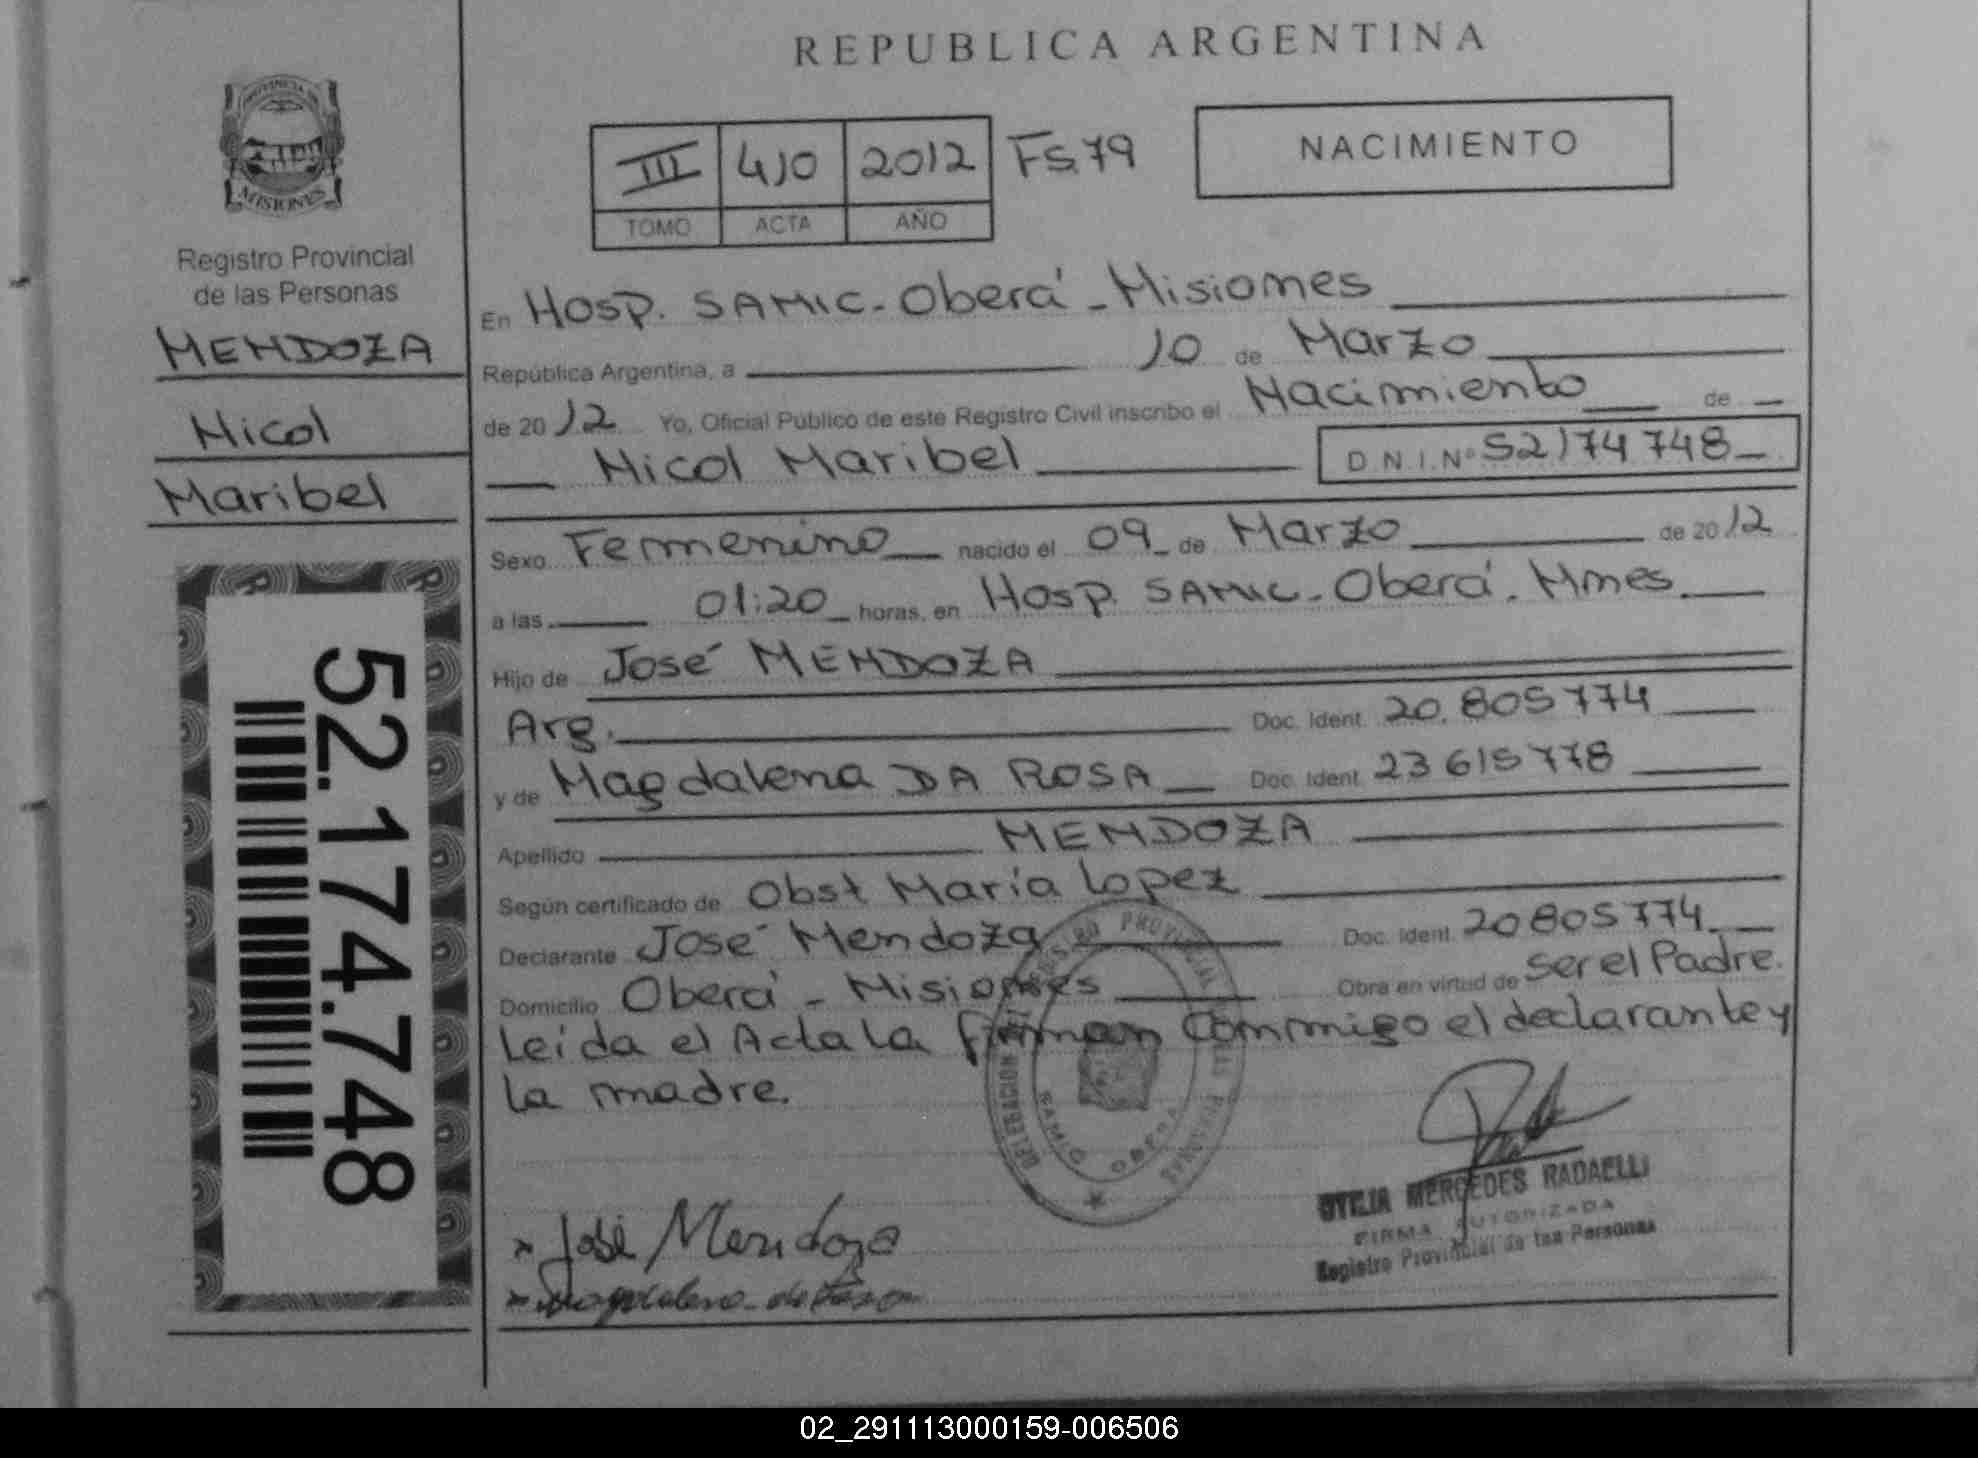 REPUBLICA ARGENTINA
PROVINCIA DE
MISIONES
Registro Provincial
de las Personas
MENDOZA
Nicol
Maribel
52.174.748
III 410 2012 Fs.79
TOMO ACTA AÑO
NACIMIENTO
En Hosp. SAMIC - Oberá - Misiones
República Argentina, a 10 de Marzo
de 2012 Yo, Oficial Público de este Registro Civil inscribo el Nacimiento de
Nicol Maribel D.N.I.Nº 52174748
Sexo Femenino nacido el 09 de Marzo de 2012
a las 01:20 horas, en Hosp. SAMIC - Oberá. Mnes
Hijo de José MENDOZA
Arg. Doc. Ident. 20.805774
y de Magdalena DA ROSA Doc. Ident. 23615778
Apellido MENDOZA
Según certificado de Obst María Lopez
Declarante José Mendoza Doc. Ident. 20805774
Domicilio Oberá - Misiones Obra en virtud de ser el Padre.
Leída el Acta la firman conmigo el declarante y
la madre.
DELEGACION REGISTRO PROVINCIAL DE LAS PERSONAS
SAMIC OBERA
OTILIA MERCEDES RADAELLI
FIRMA AUTORIZADA
Registro Provincial de las Personas
José Mendoza
Magdalena da Rosa
02_291113000159-006506